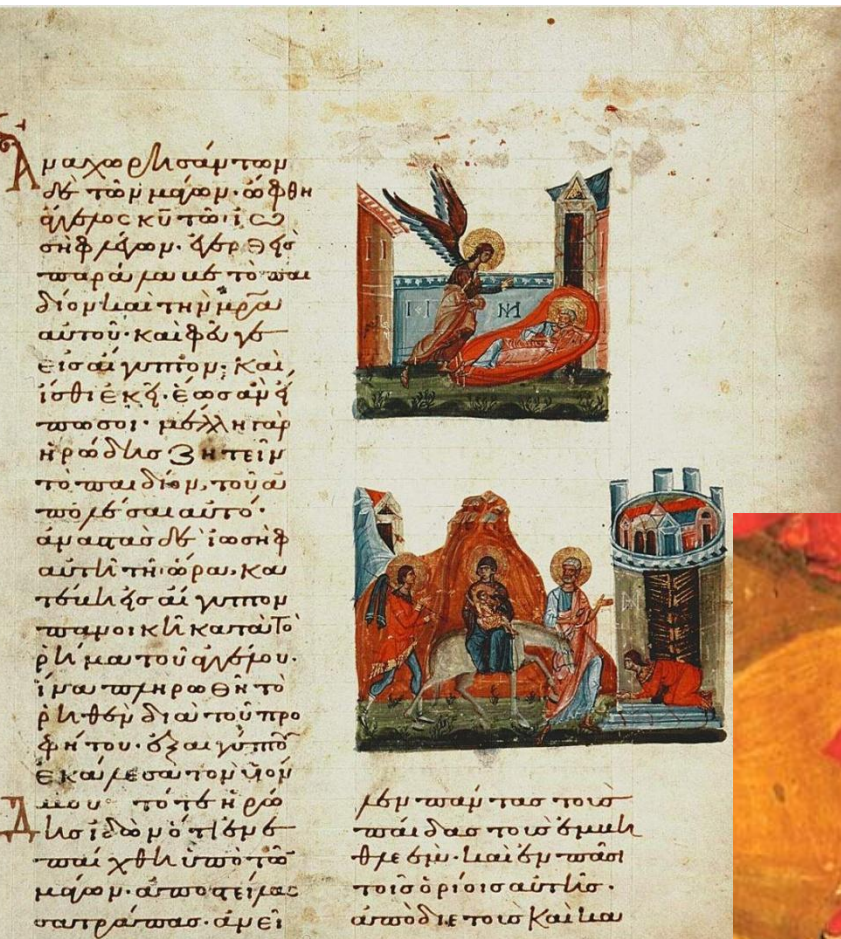 Ἀναχωρησάντων
δὲ τῶν μάγων· ὤφθη
ἄγγελος κ̅υ̅ τῶ ἰω
σὴφ λέγων. ἐγερθεὶς
παράλαβε τὸ παι
δίον καὶ τὴν μ̅ρ̅α̅
αὐτοῦ· καὶ φεῦγε
εἰς αἴγυπτον· καὶ
ἴσθι ἐκεῖ. ἕως ἂν εἴ
πω σοι· μέλλη γὰρ
ἡρώδης ζητεῖν
τὸ παιδίον, τοῦ ἀ
πολέσαι αὐτό·
ἀναστὰς δὲ ἰωσὴφ
αὐτῆ τῆ ὥρα, κα
εἰς αἴγυπτον
πανοικὴ κατὰ τὸ
ῥῆμα τοῦ ἀγγέλου.
ἵνα πληρωθῆ τὸ
ῥηθὲν διὰ τοῦ προ
φήτου· ἐξ αἰγύπτου
ἐκάλεσα τὸν υἱόν
μου τότε ἡρώ
δης ἰδὼν ὅτι ἐνε
παίχθη ὑπὸ τῶν
μάγων. ἀποστείλας
σατράπας· ἀνεῖ
λεν πάντας τοὺς
παῖδας τοὺς ἐν βη
θλεέμ· καὶ ἐν πᾶσι
τοῖς ὁρίοις αὐτῆς·
ἀπὸ διετοῦς καὶ κα